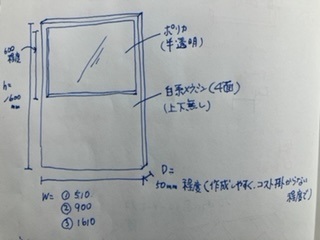 ポリカ
(半透明)
600
程度
h=
1600
mm
白系メラミン(4面)
(上下無し)
D=
50mm 程度(作成しやすく、コスト掛からない
程度で)
W= ① 510
② 900
③ 1610